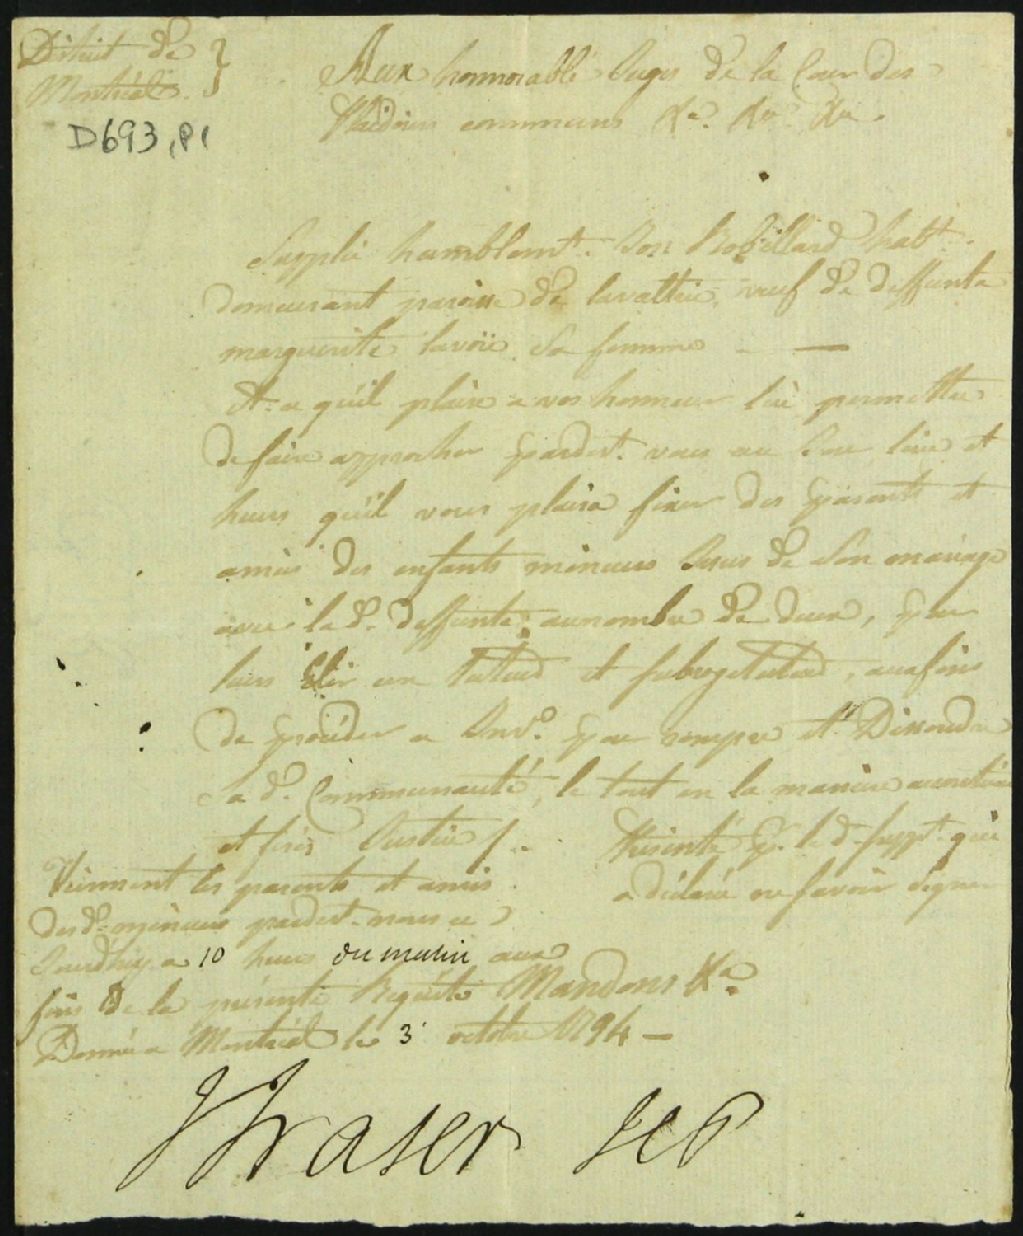 District de }
Montréal.
D693, P1
Aux honnorable Juges de la Cour des
Plaidoiers communs &a. &a. &a.
Supplie humblemt. Jos. Robillard habt.
demeurant paroisse de lavaltrie, veuf de deffunte
marguerite lavoïe sa femme —
Et a qu'il plaise a vos honneur lui permettre
de faire approcher pardevt. vous au jour, lieu et
heure qu'il vous plaira fixer des parents et
amis des enfants mineurs issus de son mariage
avec la de. deffunte, au nombre de deux, pour
leurs Elir un tuteur et subrogé tuteur, aux fins
de procéder a Invre. pour rompre et Dissoudre
sa de. Communauté, le tout en la maniere accoutumé
et ferés Justice /.
Présenté pr. le d. suppt. qui
a déclaré ne savoir signer
Viennent les parents et amis
desds. mineurs pardevt. nous ce
Jourdhuy a 10 heures du matin aux
fins de la présente Requête Mandons &a.
Donné a Montréal le 3 octobre 1794 —
J Fraser JCP